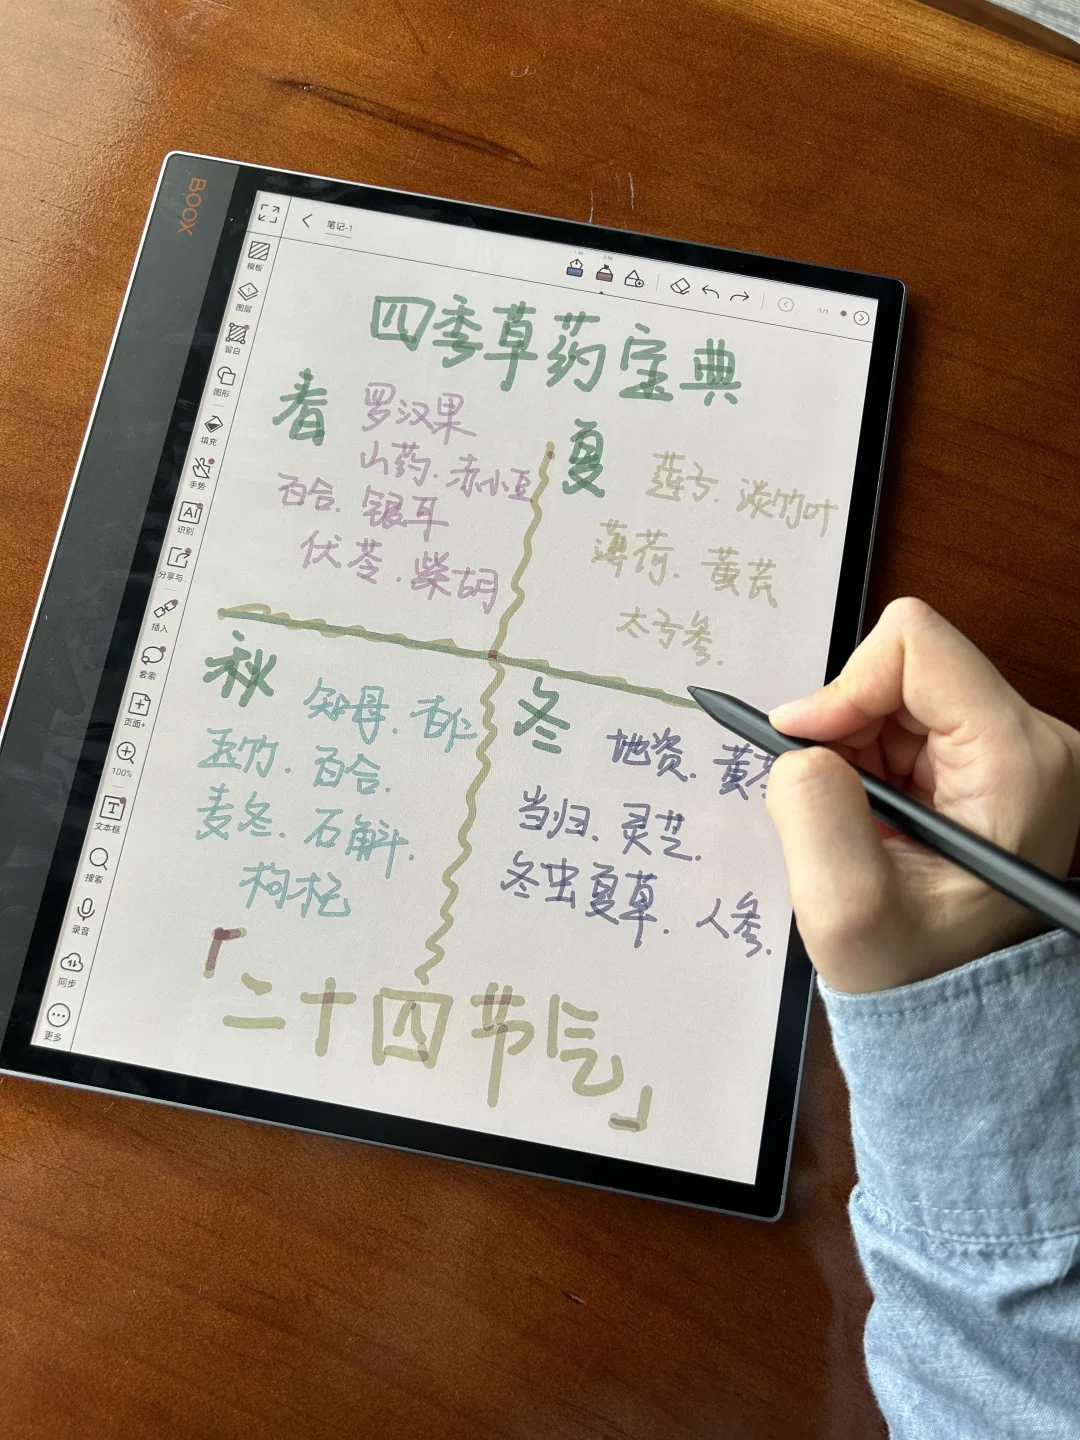 BOOX
笔记-1
1/1
模板
图层
留白
图形
填充
手势
AI
识别
分享与...
插入
套索
页面+
100%
文本框
搜索
录音
同步
更多
四季草药宝典
春
罗汉果
山药.赤小豆
百合.银耳
伏苓.柴胡
夏
莲子.淡竹叶
薄荷.黄芪
太子参.
秋
知母.杏仁
玉竹.百合.
麦冬.石斛.
枸杞
冬
地资.黄
当归.灵芝.
冬虫夏草.人参.
「二十四节气」